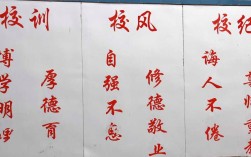 校训
学明理
厚德育
校风
自强不息
修德敬业
校纪
诲人不倦